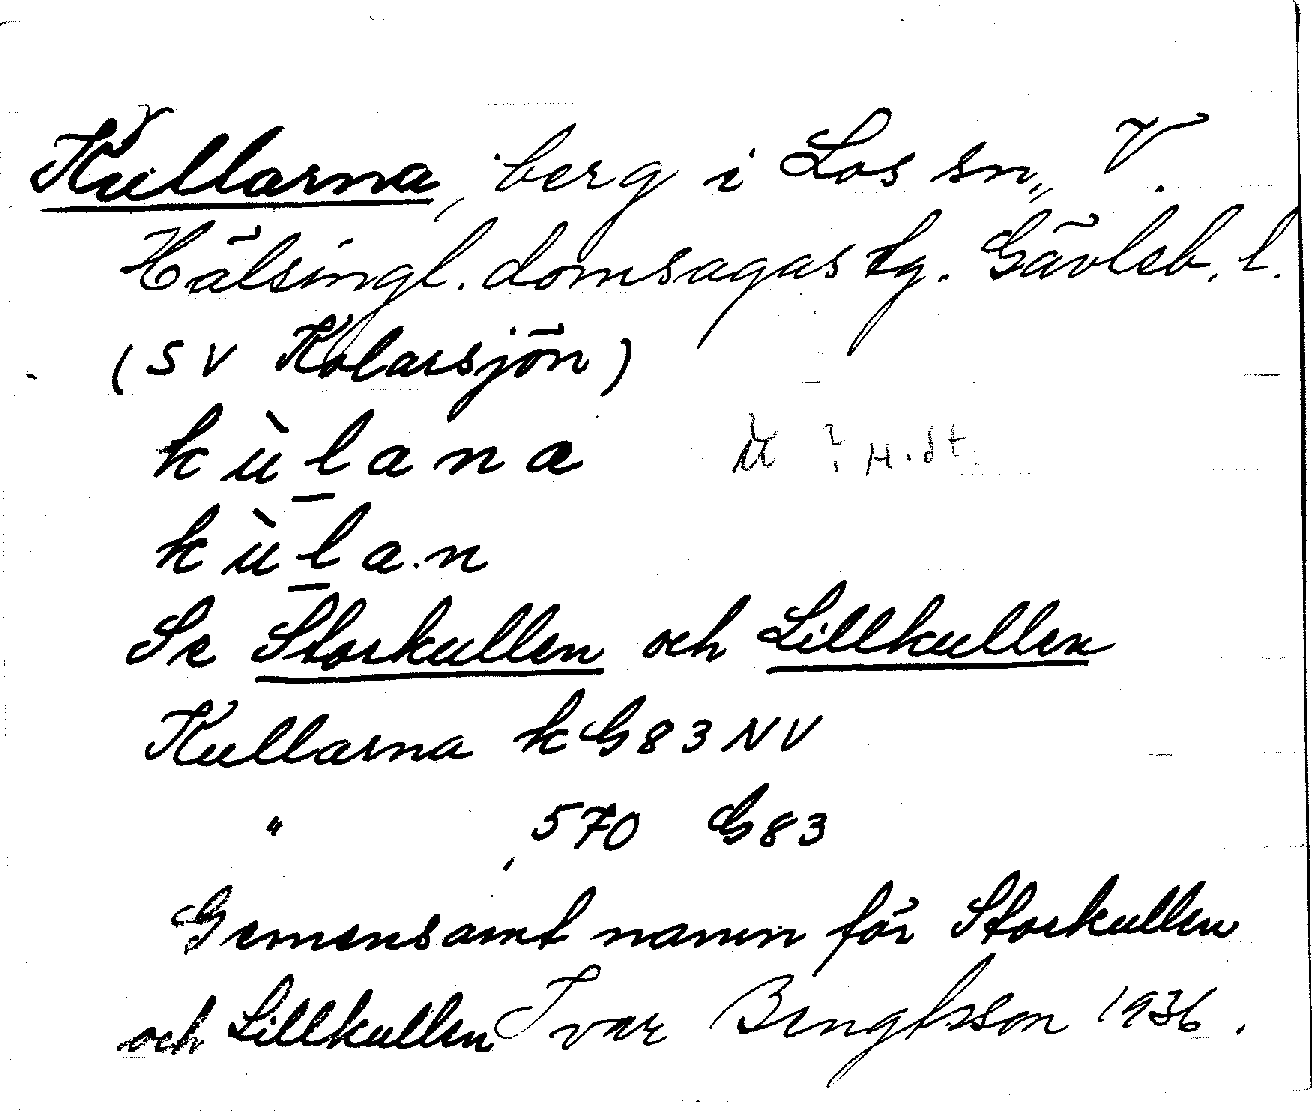 Kullarna, berg i Los sn, V.
Hälsingl. domsagas tg. Gävleb. l.
(SV Kolarsjön)
kùlana ù ? M.dt.
kùlan
Se Storkullen och Lillkullen
Kullarna k G83NV
" 570 G83
Gemensamt namn för Storkullen
och Lillkullen Ivar Bengtsson 1936.